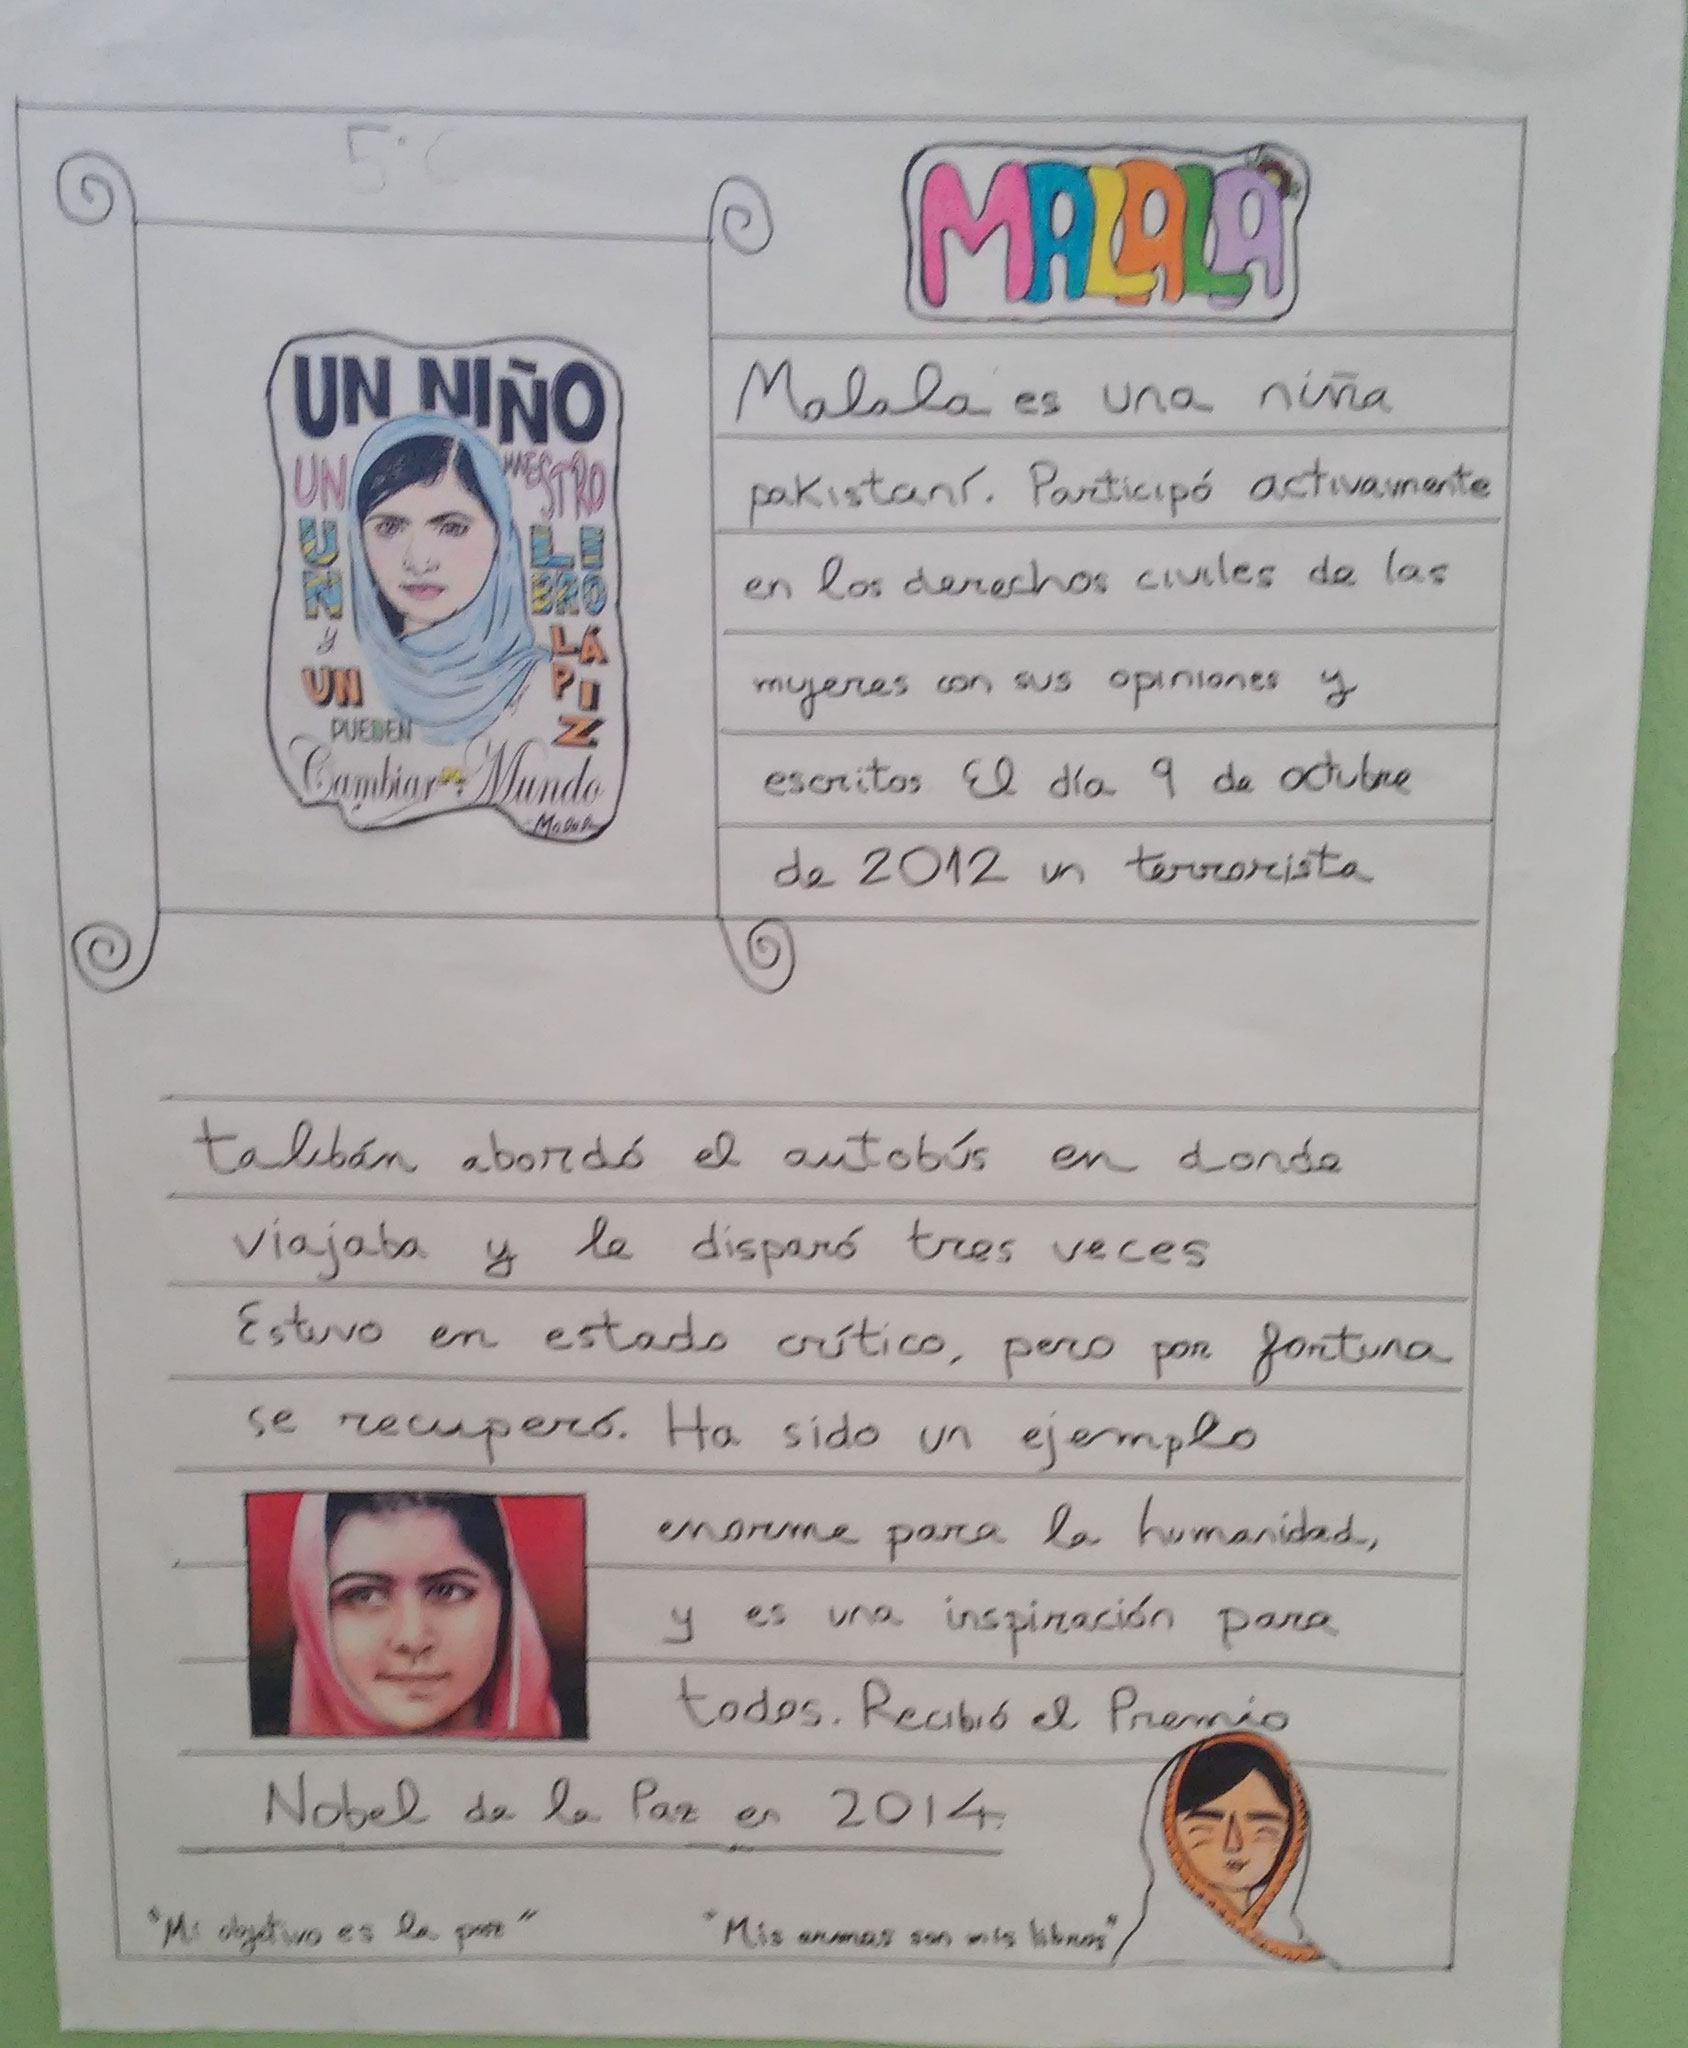 5º C
MALALA
UN NIÑO
UN MAESTRO
UN LIBRO
y
UN LÁPIZ
PUEDEN
Cambiar el Mundo
-Malala
Malala es una niña
pakistaní. Participó activamente
en los derechos civiles de las
mujeres con sus opiniones y
escritos El día 9 de octubre
de 2012 un terrorista
talibán abordó el autobús en donde
viajaba y le disparó tres veces
Estuvo en estado crítico, pero por fortuna
se recuperó. Ha sido un ejemplo
enorme para la humanidad,
y es una inspiración para
todos. Recibió el Premio
Nobel de la Paz en 2014.
"Mi objetivo es la paz"
"Mis armas son mis libros"